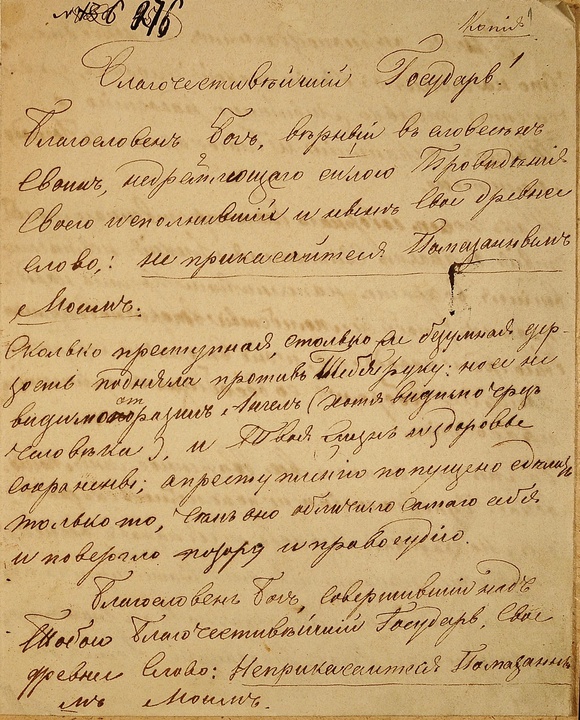 276
Копія
Благочестивѣйшій Государь!
Благословенъ Богъ, вѣрный въ словесѣхъ
Своихъ, недремлющаго силою Провидѣнія
Своего исполнившій и нынѣ Свое древнее
слово: не прикасайтеся Помазаннымъ
Моимъ.
Сколько преступная, столько же безумная дер-
зость подняла противъ Тебя руку: но ее не
видимо отразилъ Ангелъ (хотя видимо чрезъ
человѣка), и Твоя жизнь и здоровье
сохранены; а преступленію попущено сдѣлать
только то, чѣмъ оно обличило самаго себя
и повергло позору и правосудію.
Благословенъ Богъ, совершившій надъ
Тобою Благочестивѣйшій Государь, Свое
древнее Слово: Неприкасайтеся Помазанны
мъ Моимъ.